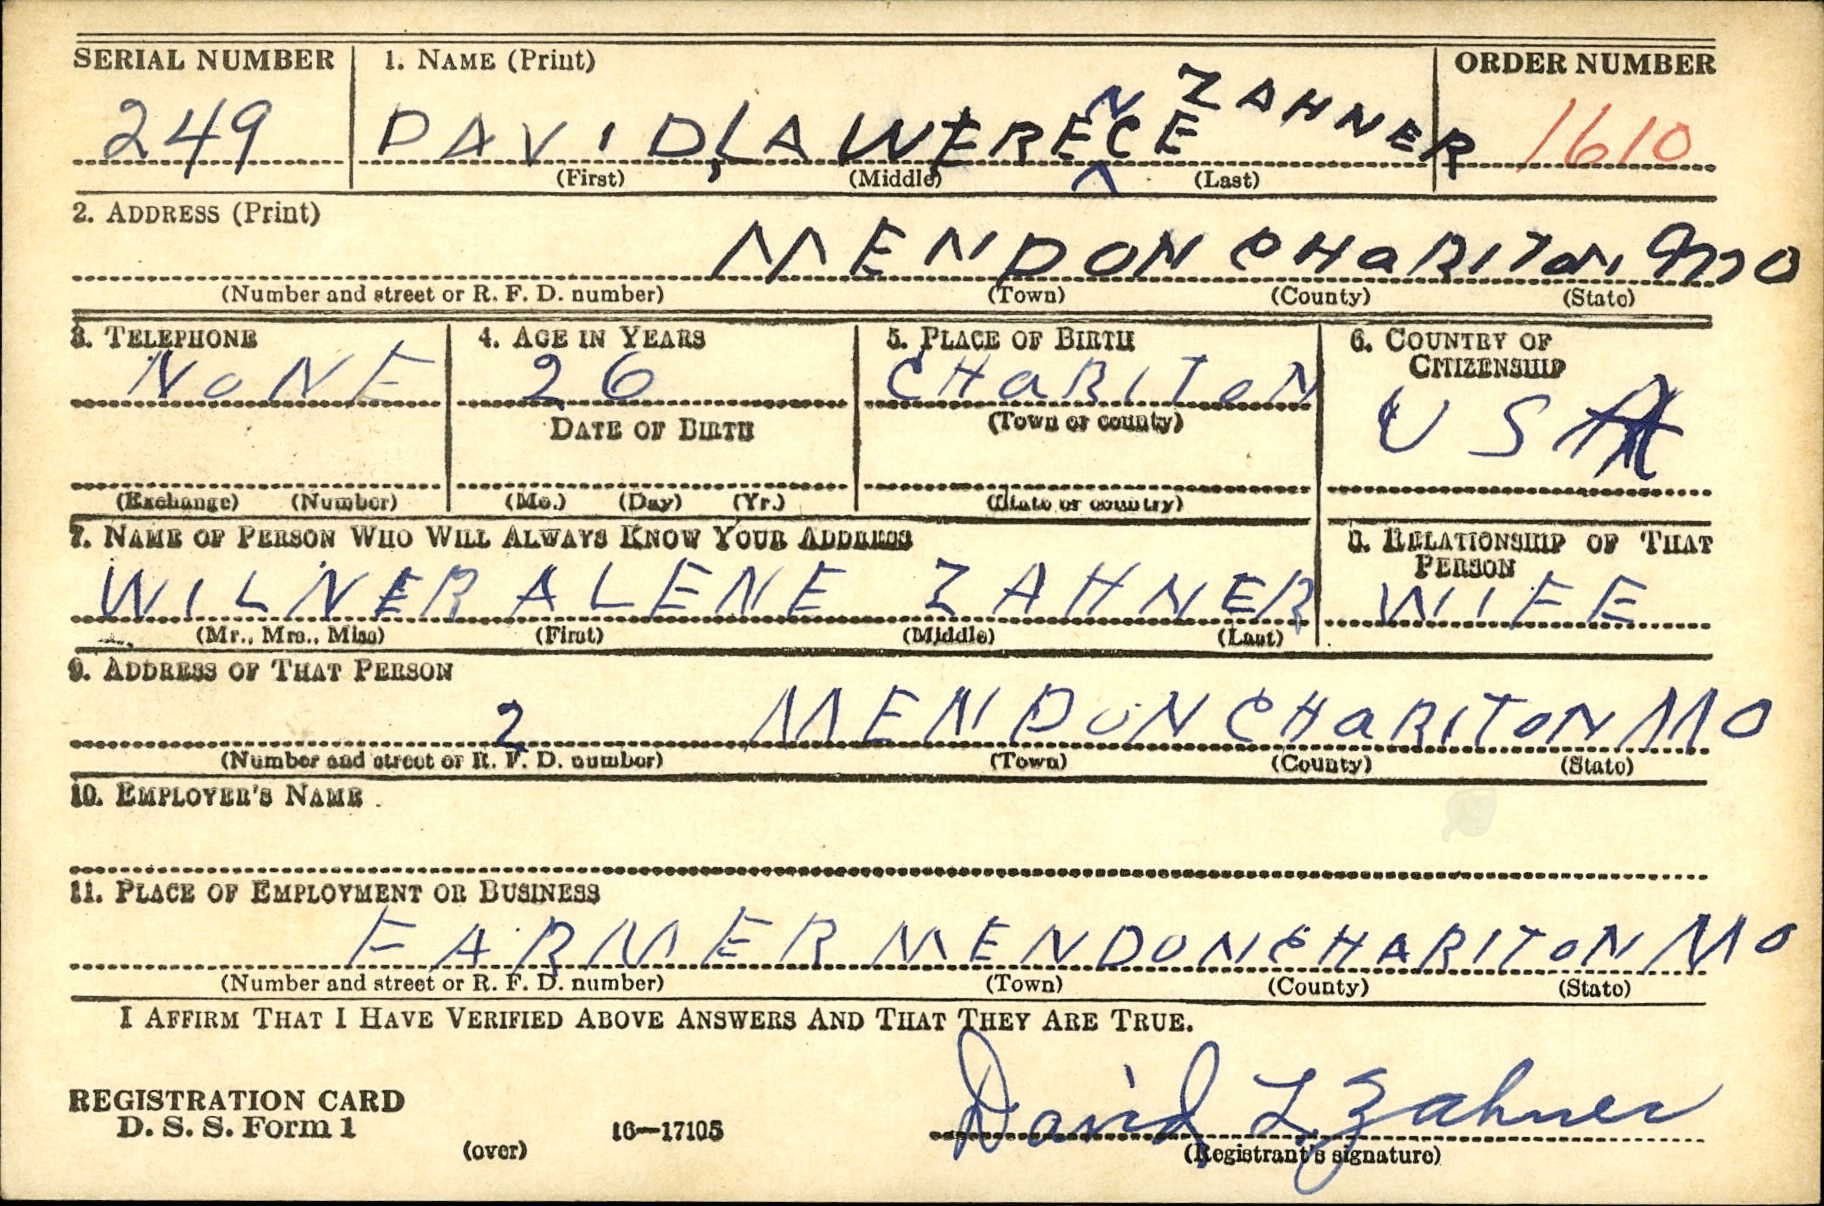 SERIAL NUMBER 1. NAME (Print) ORDER NUMBER
249 DAVID, LAWERENCE ZAHNER 1610
(First) (Middle) (Last)
2. ADDRESS (Print)
MENDON CHARITON MO
(Number and street or R. F. D. number) (Town) (County) (State)
3. TELEPHONE 4. AGE IN YEARS 5. PLACE OF BIRTH 6. COUNTRY OF CITIZENSHIP
NONE 26 CHARITON USA
DATE OF BIRTH (Town or county)
(Exchange) (Number) (Mo.) (Day) (Yr.) (State or country)
7. NAME OF PERSON WHO WILL ALWAYS KNOW YOUR ADDRESS 8. RELATIONSHIP OF THAT PERSON
WILNER ALENE ZAHNER WIFE
(Mr., Mrs., Miss) (First) (Middle) (Last)
9. ADDRESS OF THAT PERSON
2 MENDON CHARITON MO
(Number and street or R. F. D. number) (Town) (County) (State)
10. EMPLOYER'S NAME
11. PLACE OF EMPLOYMENT OR BUSINESS
FARMER MENDON CHARITON MO
(Number and street or R. F. D. number) (Town) (County) (State)
I AFFIRM THAT I HAVE VERIFIED ABOVE ANSWERS AND THAT THEY ARE TRUE.
David L Zahner
REGISTRATION CARD
D. S. S. Form 1
(over) 16—17105 (Registrant's signature)